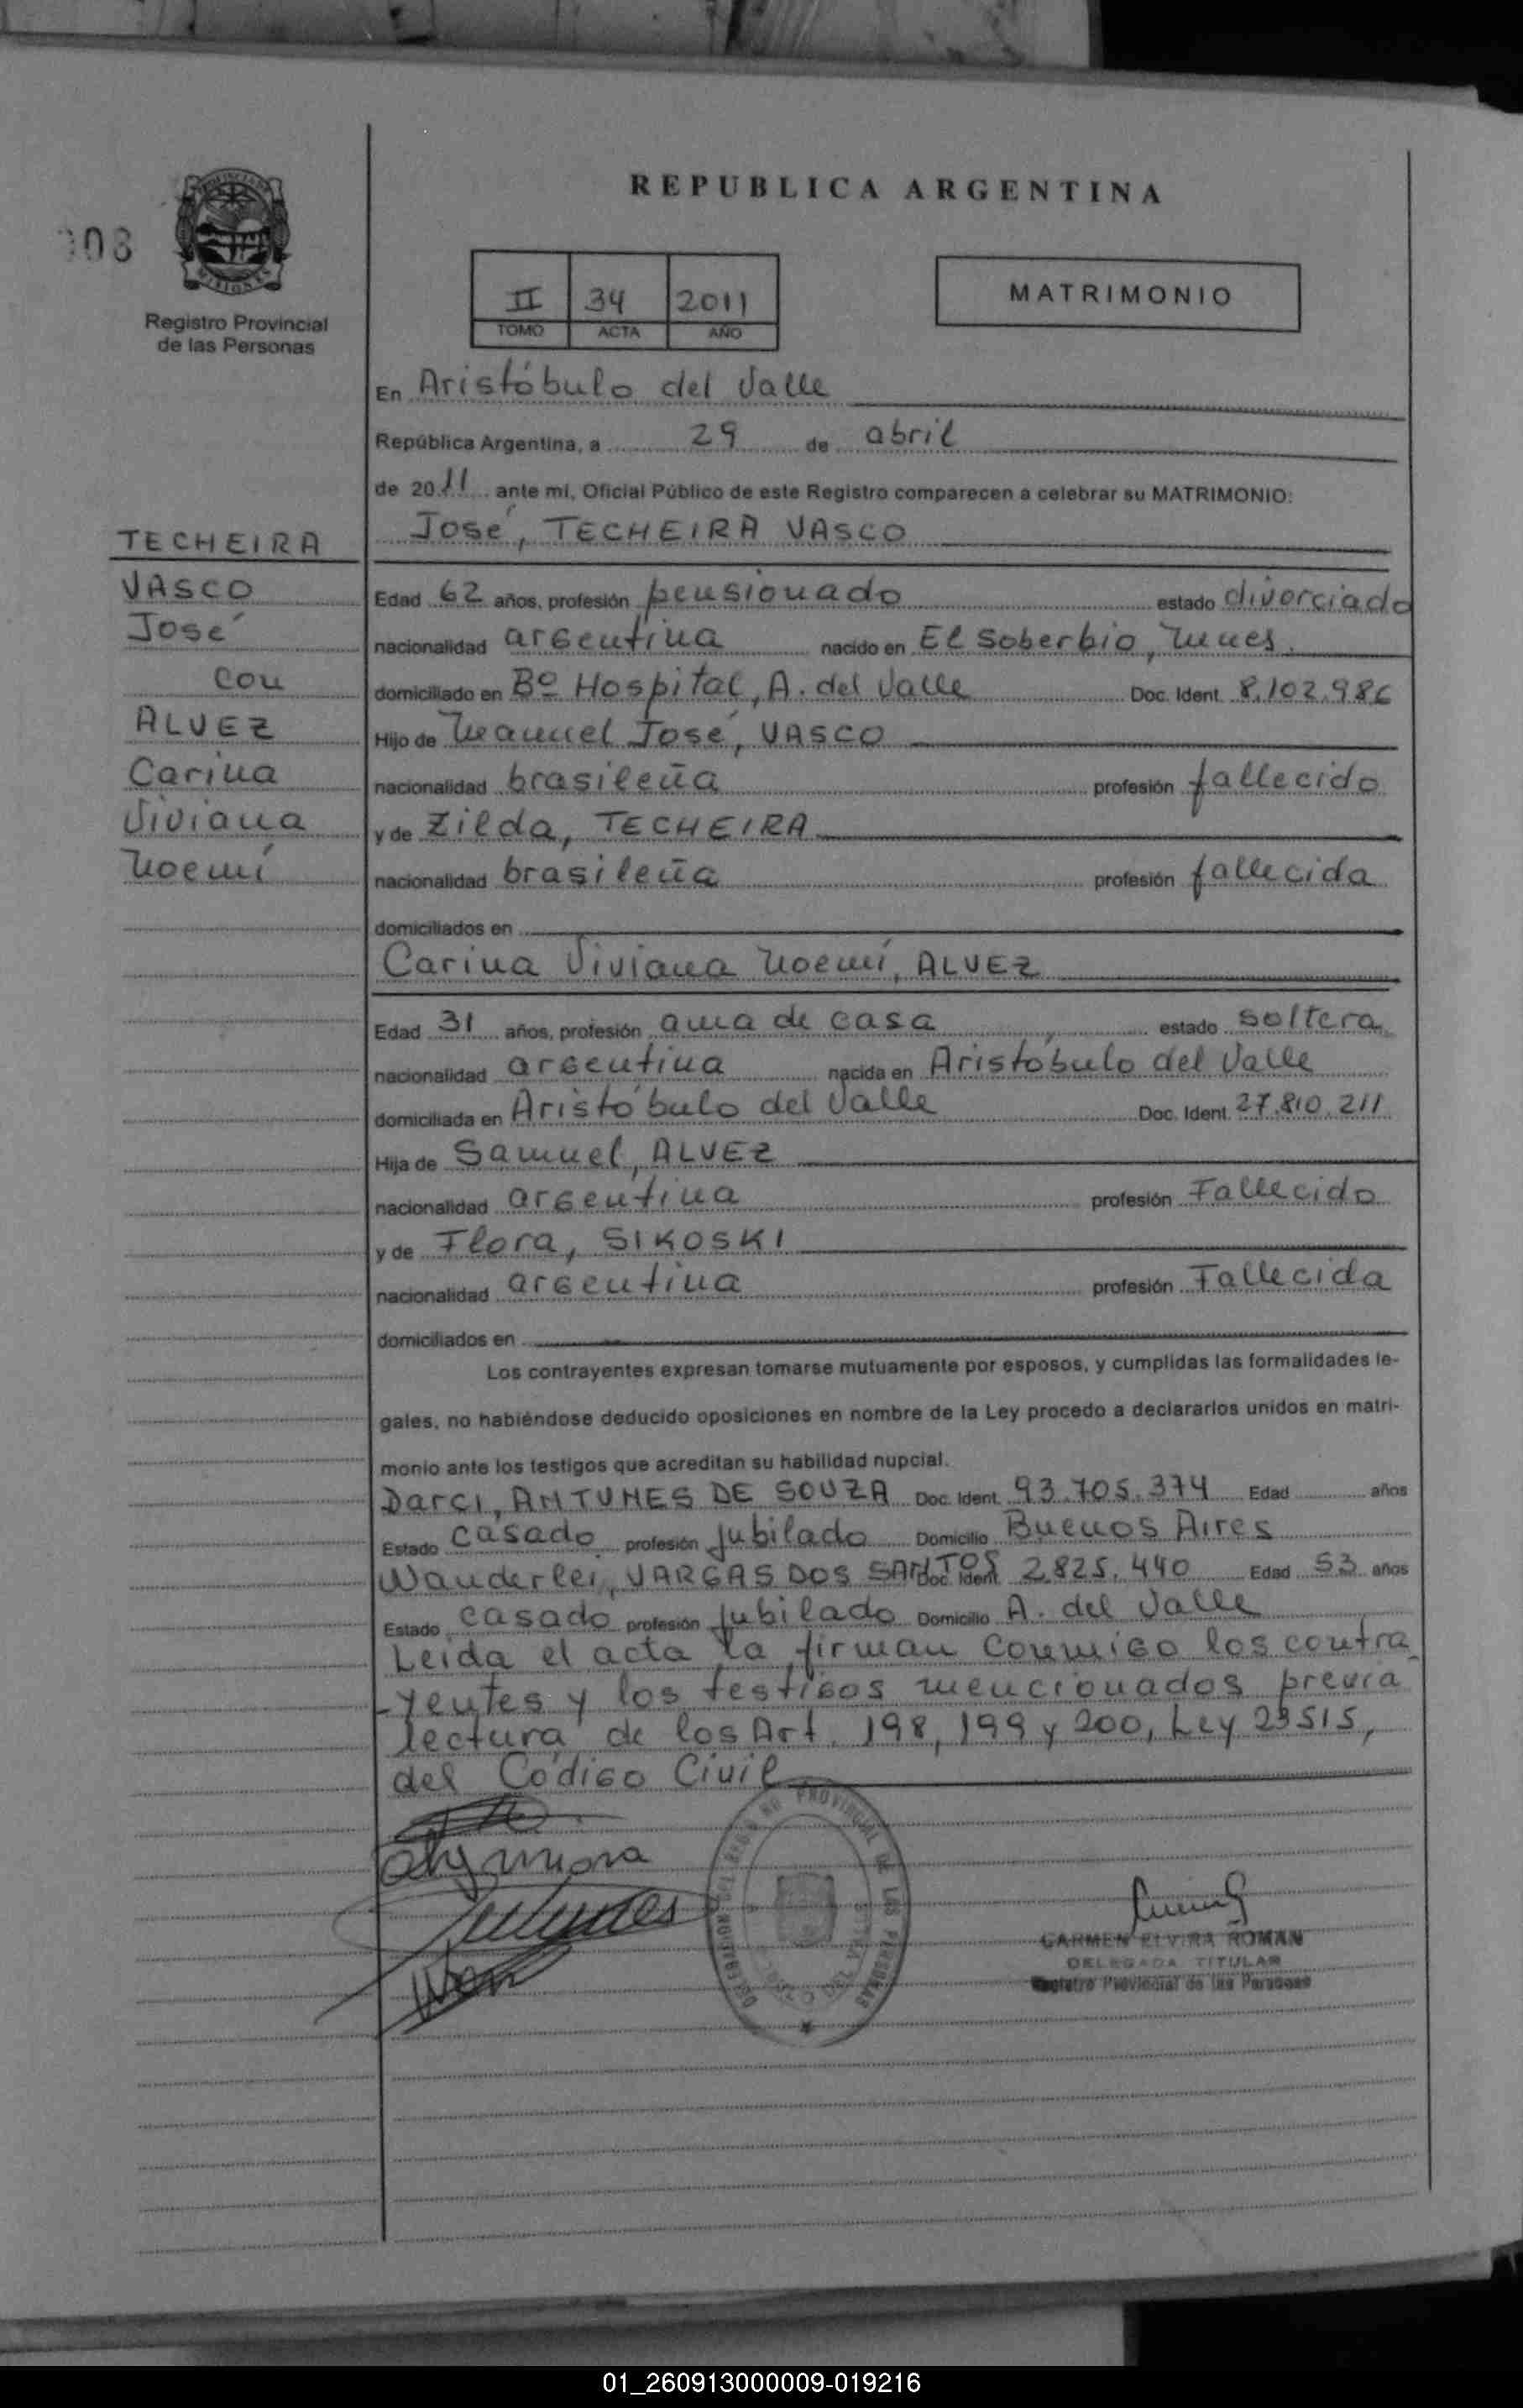 REPUBLICA ARGENTINA
08
Registro Provincial
de las Personas
II 34 2011
TOMO ACTA AÑO
MATRIMONIO
En Aristóbulo del Valle
República Argentina, a 29 de abril
de 2011 ante mí, Oficial Público de este Registro comparecen a celebrar su MATRIMONIO:
José, TECHEIRA VASCO
TECHEIRA
VASCO
José
con
ALVEZ
Carina
Viviana
Noemí
Edad 62 años, profesión pensionado estado divorciado
nacionalidad argentina nacido en El Soberbio, Mnes.
domiciliado en Bº Hospital, A. del Valle Doc. Ident. 8.102.986
Hijo de Manuel José, VASCO
nacionalidad brasileña profesión fallecido
y de Zilda, TECHEIRA
nacionalidad brasileña profesión fallecida
domiciliados en
Carina Viviana Noemí, ALVEZ
Edad 31 años, profesión ama de casa estado soltera
nacionalidad argentina nacida en Aristóbulo del Valle
domiciliada en Aristóbulo del Valle Doc. Ident. 27.810.211
Hija de Samuel, ALVEZ
nacionalidad argentina profesión Fallecido
y de Flora, SIKOSKI
nacionalidad argentina profesión Fallecida
domiciliados en
Los contrayentes expresan tomarse mutuamente por esposos, y cumplidas las formalidades le-
gales, no habiéndose deducido oposiciones en nombre de la Ley procedo a declararlos unidos en matri-
monio ante los testigos que acreditan su habilidad nupcial.
Darci, ANTUNES DE SOUZA Doc. Ident. 93.705.374 Edad años
Estado casado profesión jubilado Domicilio Buenos Aires
Wanderlei, VARGAS DOS SANTOS Doc. Ident. 2.825.440 Edad 53 años
Estado casado profesión jubilado Domicilio A. del Valle
Leída el acta la firman conmigo los contra
-yentes y los testigos mencionados previa
lectura de los Art. 198, 199 y 200, Ley 23515,
del Código Civil
CARMEN ELVIRA ROMAN
DELEGADA TITULAR
Registro Provincial de las Personas
01_260913000009-019216